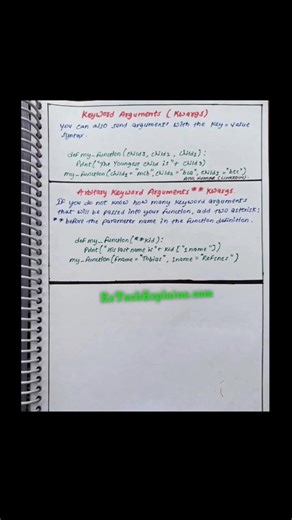 Keyword Arguments ( Kwargs)
You can also send arguments with the key = value
syntax.
def my_function (child3, child2, child1) :
Print ("The Youngest child is" + child3)
my_function (child1 = "mcb", child2 = "bca", child3 = "bcs")
Arbitary Keyword Arguments ** Kwargs
If you do not know how many keyword arguments
that will be passed into your function, add two asterisk:
** before the parameter name in the function definition.
def my_function (**kid) :
Print ("His last name is" + kid ["lname"])
my_function (fname = "Tobias", lname = "Refsnes")